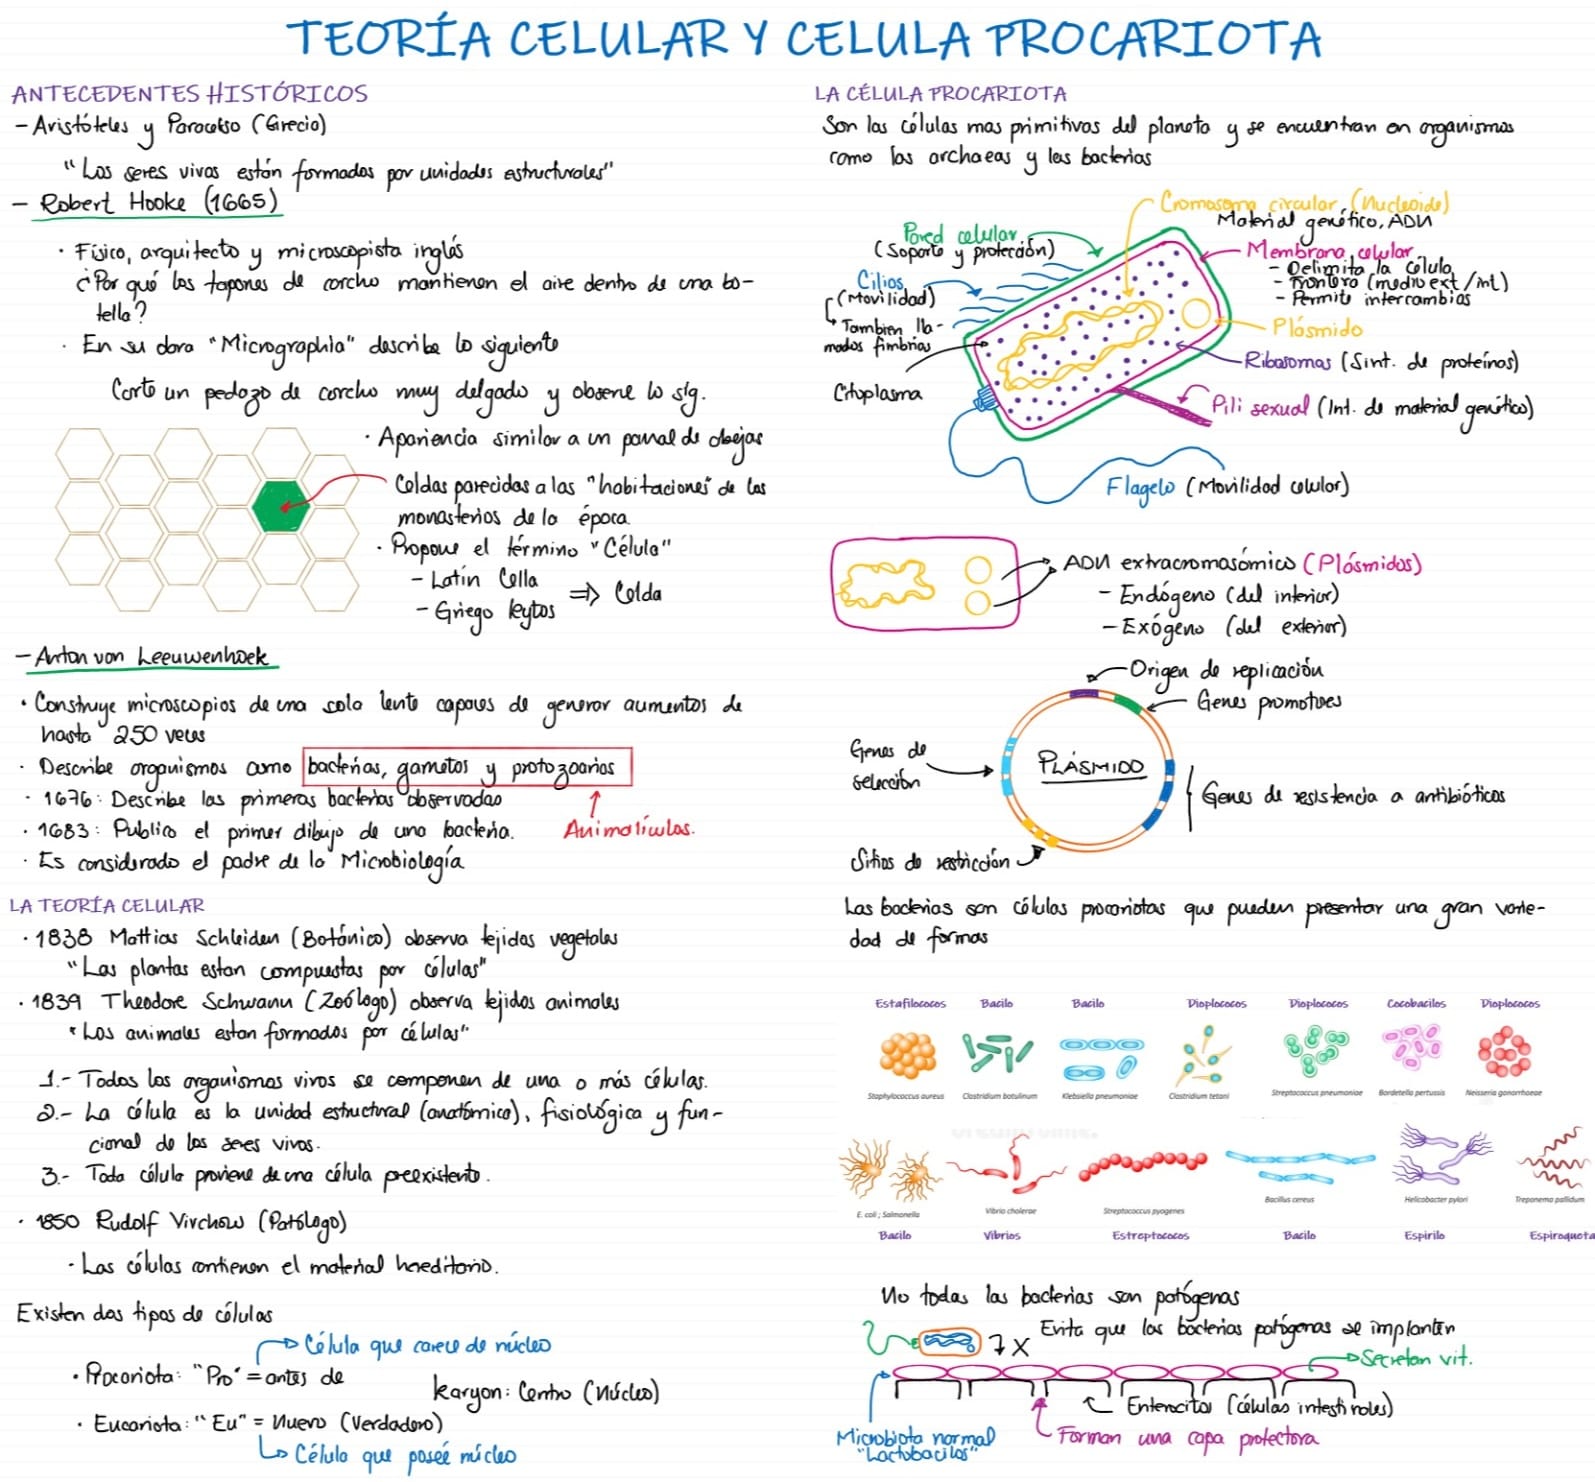 TEORÍA CELULAR Y CELULA PROCARIOTA
ANTECEDENTES HISTÓRICOS
- Aristóteles y Paracelso (Grecia)
"Los seres vivos están formados por unidades estructurales"
- Robert Hooke (1665)
· Físico, arquitecto y microscopista inglés
¿Por qué los tapones de corcho mantienen el aire dentro de una bo-
tella?
· En su obra "Micrographia" describe lo siguiente
Corte un pedazo de corcho muy delgado y observe lo sig.
· Apariencia similar a un panal de abejas
Celdas parecidas a las "habitaciones" de los
monasterios de la época.
· Propone el término "Célula"
- Latín Cella
- Griego keytos
⇒ Celda
- Anton von Leeuwenhoek
· Construye microscopios de una sola lente capaces de generar aumentos de
hasta 250 veces
· Describe organismos como bacterias, gametos y protozoarios
· 1676: Describe las primeras bacterias observadas
· 1683: Publico el primer dibujo de una bacteria.
Animalículos.
· Es considerado el padre de la Microbiología
LA TEORÍA CELULAR
· 1838 Mattias Schleiden (Botánico) observa tejidos vegetales
"Las plantas estan compuestas por células"
· 1839 Theodore Schwann (Zoólogo) observa tejidos animales
"Los animales estan formados por células"
1.- Todos los organismos vivos se componen de una o más células.
2.- La célula es la unidad estructural (anatómica), fisiológica y fun-
cional de los seres vivos.
3.- Toda célula proviene de una célula preexistente.
· 1850 Rudolf Virchow (Patólogo)
· Las células contienen el material hereditario.
Existen dos tipos de células
Célula que carece de núcleo
· Procariota: "Pro" = antes de
Karyon: Centro (Núcleo)
· Eucariota: "Eu" = Nuevo (Verdadero)
Célula que poseé núcleo
LA CÉLULA PROCARIOTA
Son las células mas primitivas del planeta y se encuentran en organismos
como las archaeas y las bacterias
Cromosoma circular (Nucleoide)
Material genético, ADN
Pared celular
(Soporte y protección)
Membrana celular
- Delimita la célula
- Frontera (medio ext/int)
- Permite intercambios
Cilios
(Movilidad)
Tambien lla-
mados fimbrias
Plásmido
Ribosomas (Sint. de proteínas)
Citoplasma
Pili sexual (Int. de material genético)
Flagelo (Movilidad celular)
ADN extracromosómico (Plásmidos)
- Endógeno (del interior)
- Exógeno (del exterior)
Origen de replicación
Genes promotores
Genes de
selección
PLÁSMIDO
Genes de resistencia a antibióticos
Sitios de restricción
Las bacterias son células procariotas que pueden presentar una gran varie-
dad de formas
Estafilococos Bacilo Bacilo Dioplococos Dioplococos Cocobacilos Dioplococos
Staphylococcus aureus Clostridium botulinum Klebsiella pneumoniae Clostridium tetani Streptococcus pneumoniae Bordetella pertussis Neisseria gonorrhoeae
E. coli ; Salmonella Vibrio cholerae Streptococcus pyogenes Bacillus cereus Helicobacter pylori Treponema pallidum
Bacilo Vibrios Estreptococos Bacilo Espirilo Espiroqueta
No todas las bacterias son patógenas
Evita que las bacterias patógenas se implanten
X
Secretan vit.
Enterocitos (células intestinales)
Microbiota normal
"Lactobacilos"
Forman una capa protectora